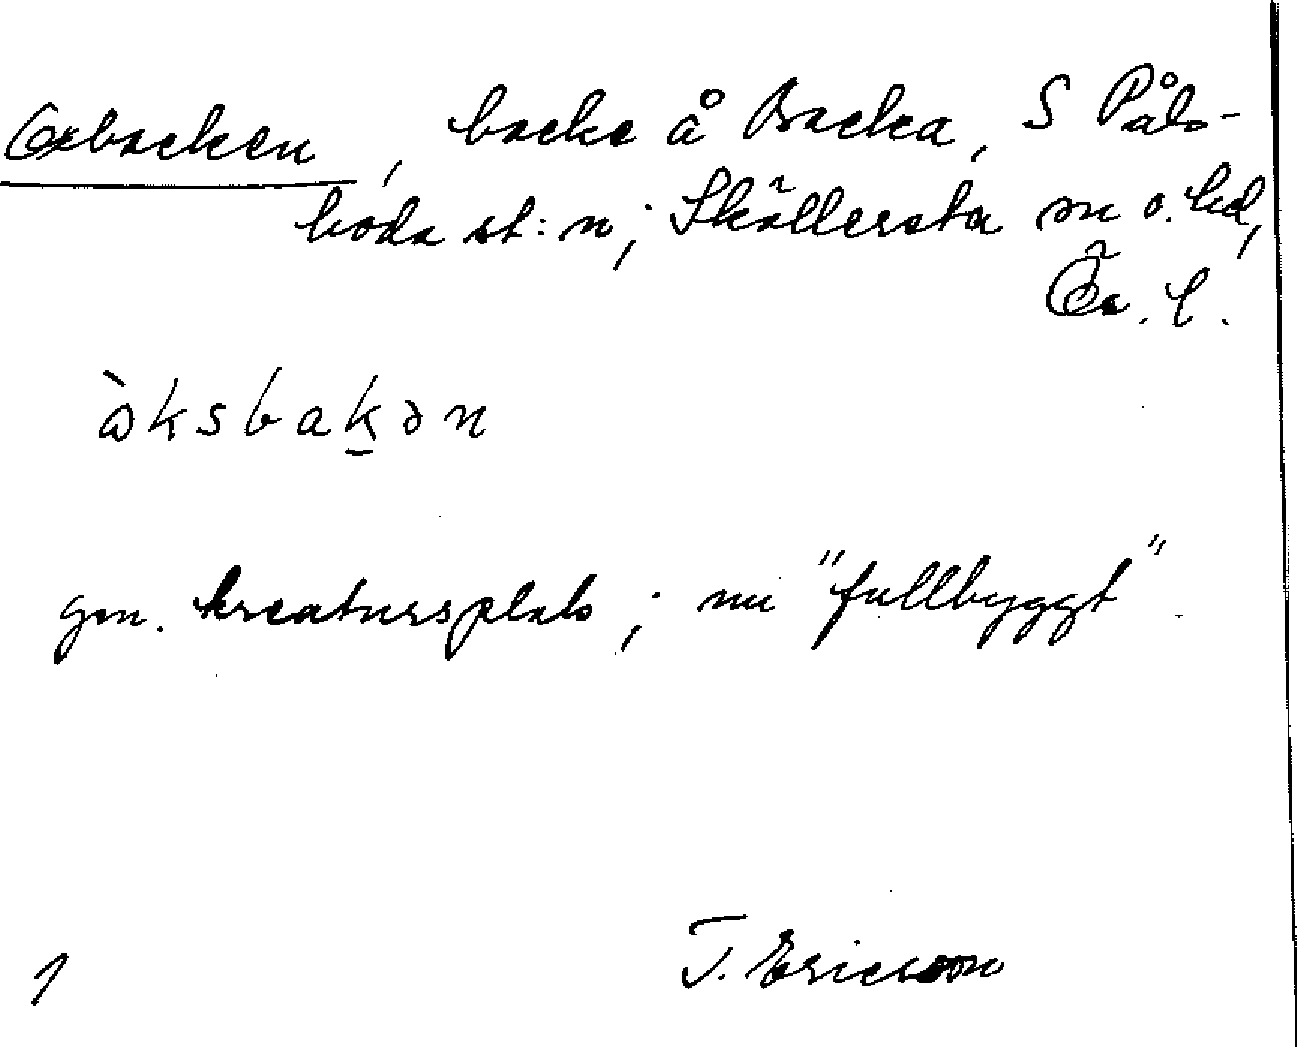 Oxbacken, backe å Backa, S Påls-
boda st:n; Sköllersta sn o. hd,
Ör. l.
ὼksbak̲ən
gm. kreatursplats; nu "fullbyggt"
T. Ericsson
1